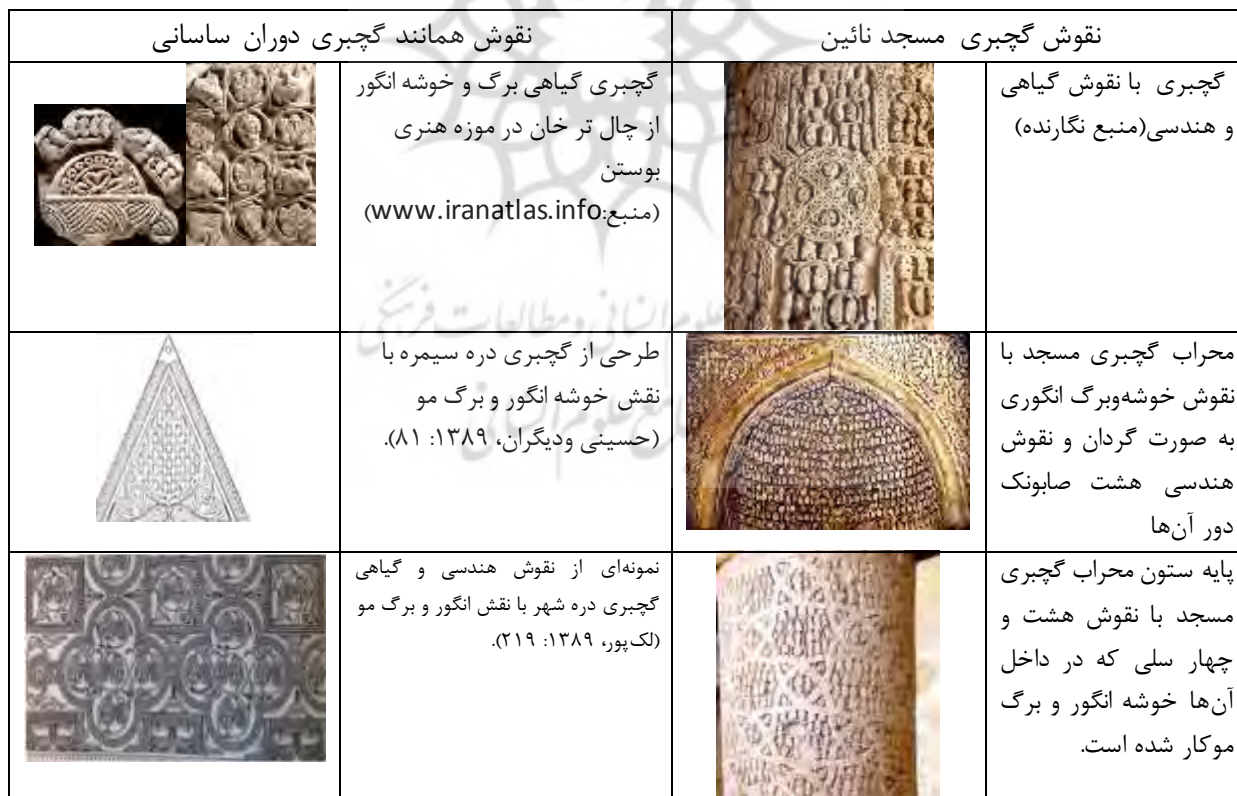 نقوش گچبری مسجد نائین
نقوش همانند گچبری دوران ساسانی
گچبری با نقوش گیاهی
و هندسی(منبع نگارنده)
گچبری گیاهی برگ و خوشه انگور
از چال تر خان در موزه هنری
بوستن
(منبع:www.iranatlas.info)
محراب گچبری مسجد با
نقوش خوشهوبرگ انگوری
به صورت گردان و نقوش
هندسی هشت صابونک
دور آن‌ها
طرحی از گچبری دره سیمره با
نقش خوشه انگور و برگ مو
(حسینی ودیگران، ۱۳۸۹: ۸۱).
پایه ستون محراب گچبری
مسجد با نقوش هشت و
چهار سلی که در داخل
آن‌ها خوشه انگور و برگ
موکار شده است.
نمونه‌ای از نقوش هندسی و گیاهی
گچبری دره شهر با نقش انگور و برگ مو
(لک‌پور، ۱۳۸۹: ۲۱۹).
علوم انسانی و مطالعات فرهنگی
جامع علوم انسانی